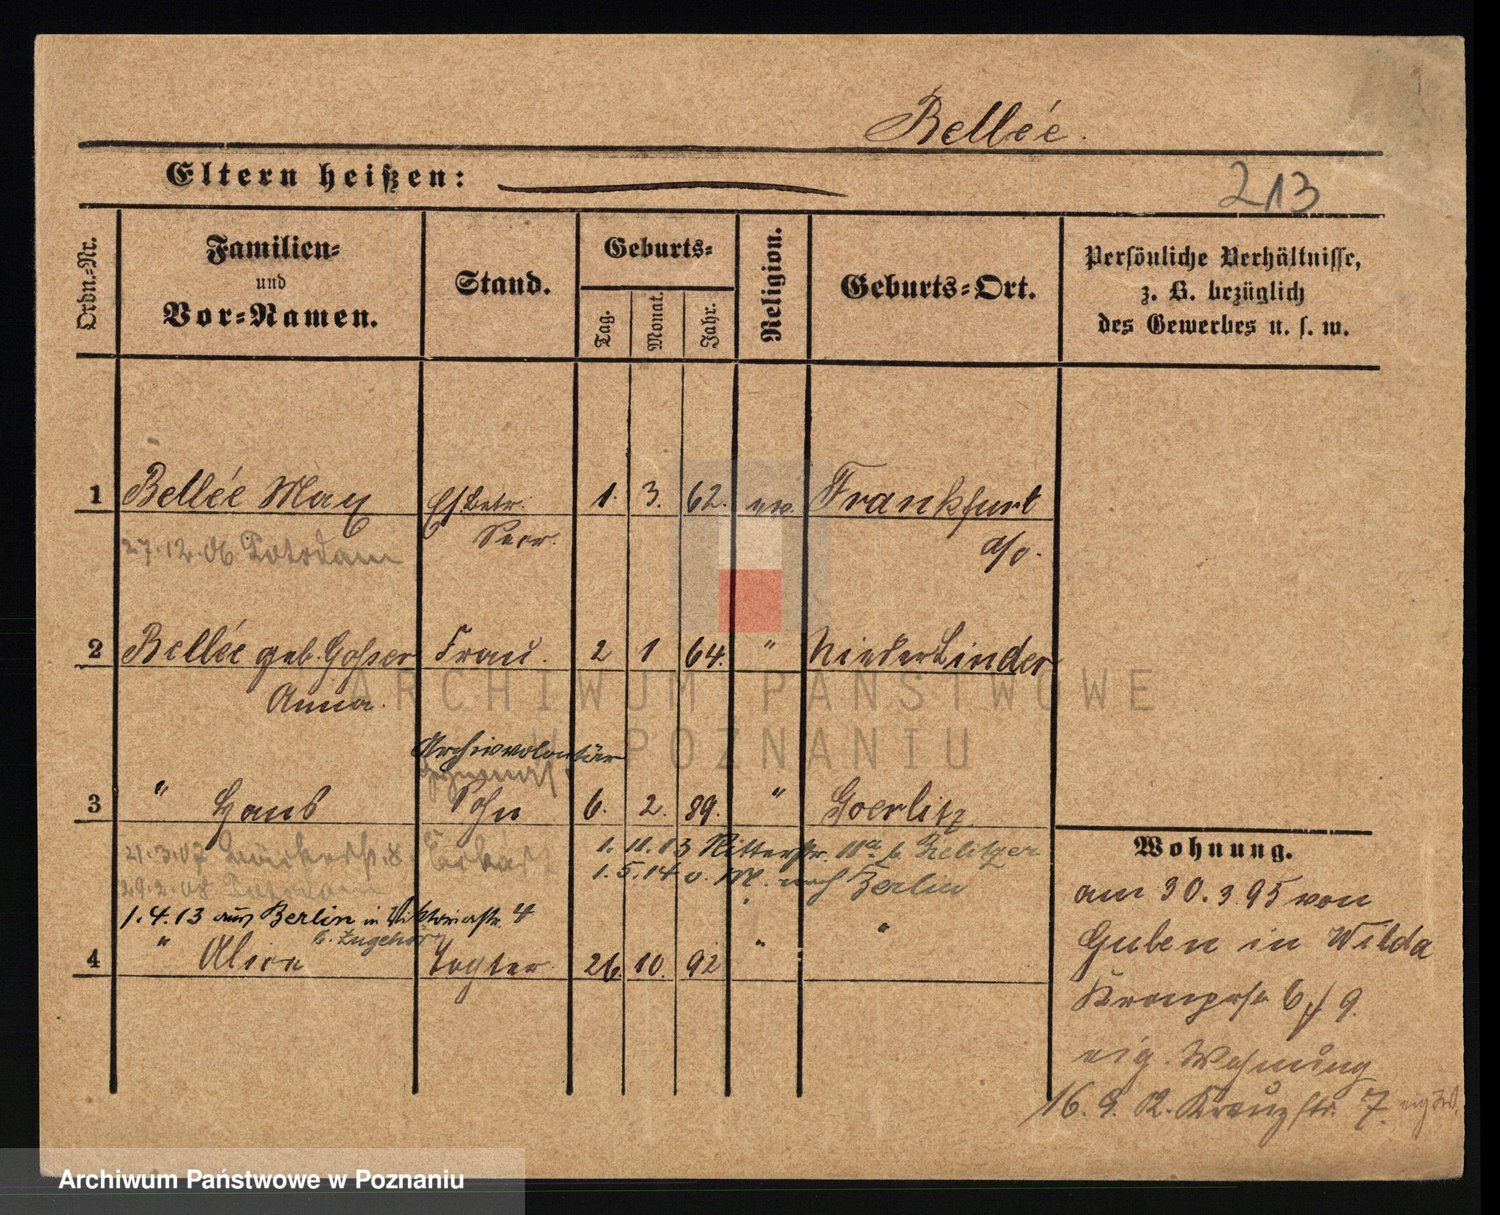 Bellée.
Eltern heißen:
213
Ordn.-Nr.
Familien-
und
Vor-Namen.
Stand.
Geburts-
Tag.
Monat.
Jahr.
Religion.
Geburts-Ort.
Persönliche Verhältnisse,
z. B. bezüglich
des Gewerbes u. s. w.
1 Bellée Max 1. 3. 62. ev. Frankfurt
Secr. a/o.
27.12.06 Potsdam
2 Bellée geb. Frau. 2 1 64. " Nieder Linder
Anna.
Archivvolontär
3 " Hans Sohn 6. 2. 89. " Goerlitz
21.3.07
1.11.13 Ritterstr. 11a b.
29.2.08 Potsdam
1.5.14 v. M. nach Berlin
1.4.13 aus Berlin in Viktoriastr. 4
b. Zugehör
4 " Alice Tochter 26. 10. 92 " "
Wohnung.
am 30.3.95 von
Guben in Wilda
Kronprstr 6 / 9.
eig. Wohnung
16. 9. K. Kreuzstr. 7.
ARCHIWUM PAŃSTWOWE
W POZNANIU
Archiwum Państwowe w Poznaniu